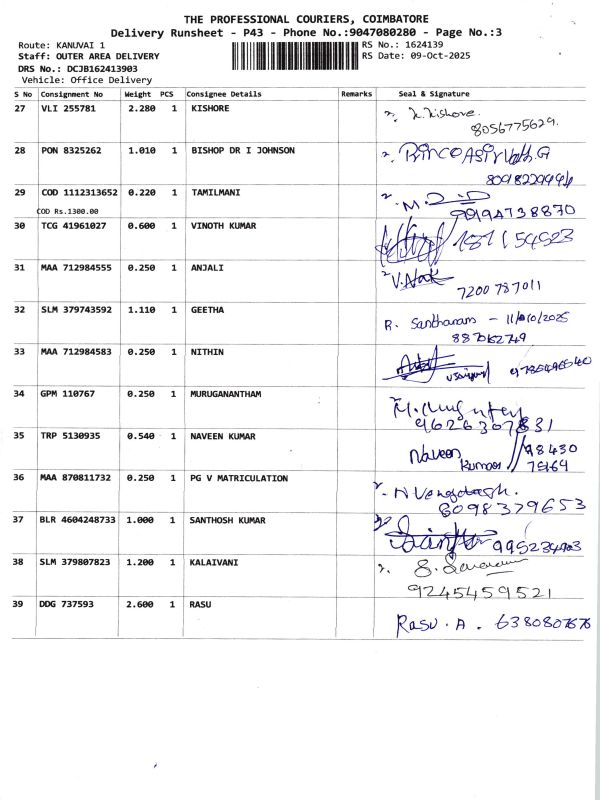 THE PROFESSIONAL COURIERS, COIMBATORE
Delivery Runsheet - P43 - Phone No.:9047080280 - Page No.:3
Route: KANUVAI 1 RS No.: 1624139
Staff: OUTER AREA DELIVERY RS Date: 09-Oct-2025
DRS No.: DCJB162413903
Vehicle: Office Delivery
S No Consignment No Weight PCS Consignee Details Remarks Seal & Signature
27 VLI 255781 2.280 1 KISHORE K. Kishore.
8056775629.
28 PON 8325262 1.010 1 BISHOP DR I JOHNSON
29 COD 1112313652 0.220 1 TAMILMANI
COD Rs.1300.00 90194738870
30 TCG 41961027 0.600 1 VINOTH KUMAR
31 MAA 712984555 0.250 1 ANJALI
7200787011
32 SLM 379743592 1.110 1 GEETHA R. Santharam
33 MAA 712984583 0.250 1 NITHIN
34 GPM 110767 0.250 1 MURUGANANTHAM
9626307831
35 TRP 5130935 0.540 1 NAVEEN KUMAR Naveen Kumar 98430
75169
36 MAA 870811732 0.250 1 PG V MATRICULATION
8098379653
37 BLR 4604248733 1.000 1 SANTHOSH KUMAR
38 SLM 379807823 1.200 1 KALAIVANI
9245459521
39 DDG 737593 2.600 1 RASU Rasu. A. 6380807676